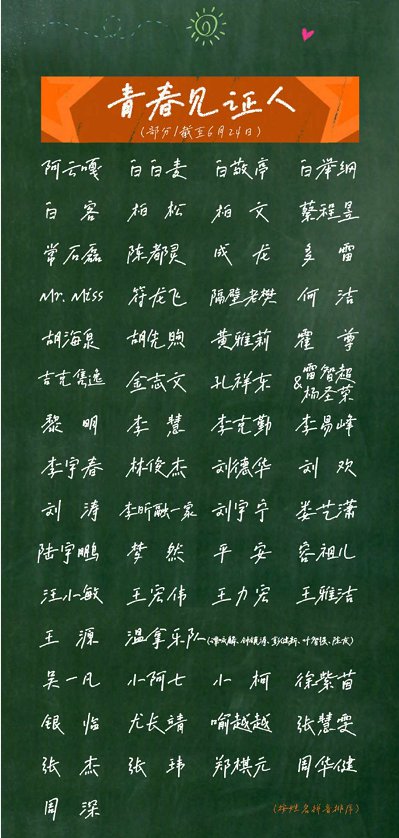 青春见证人
(部分/截至6月24日)
阿云嘎 白白麦 白敬亭 白举纲
白客 柏松 柏文 蔡程昱
常石磊 陈都灵 成龙 多雷
Mr. Miss 符龙飞 隔壁老樊 何洁
胡海泉 胡先煦 黄雅莉 霍尊
吉克隽逸 金志文 孔祥东 雷智超&杨圣荣
黎明 李慧 李克勤 李易峰
李宇春 林俊杰 刘德华 刘欢
刘涛 李昕融一家 刘宇宁 娄艺潇
陆宇鹏 梦然 平安 容祖儿
汪小敏 王宏伟 王力宏 王雅洁
王源 温拿乐队(谭咏麟、钟镇涛、彭健新、叶智强、陈友)
吴一凡 小阿七 小柯 徐紫茵
银临 尤长靖 喻越越 张慧雯
张杰 张玮 郑棋元 周华健
周深
(按姓名拼音排序)